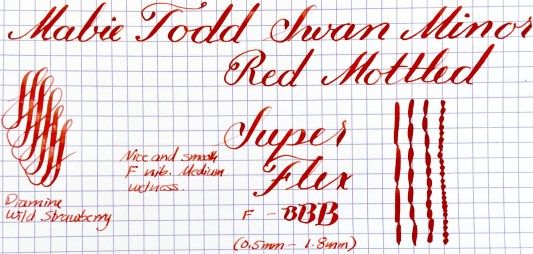 Mabie Todd Swan Minor
Red Mottled
Super
Flex
F - BBB
(0.5mm - 1.8mm)
Nice and smooth
F nib. Medium
wetness.
Diamine
Wild Strawberry